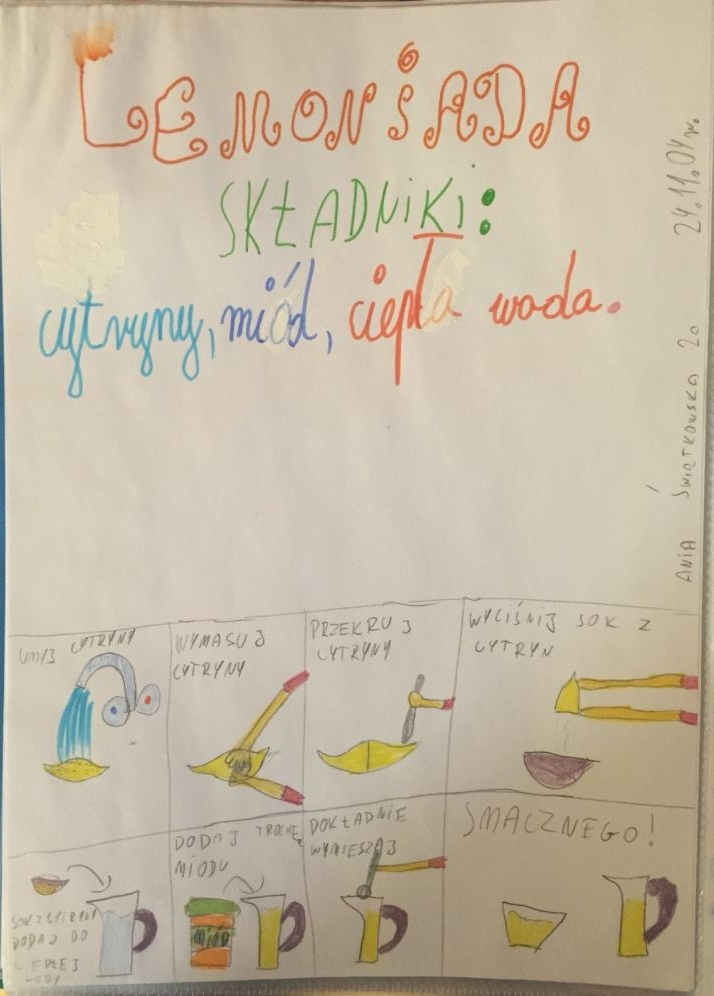 LEMONIADA
SKŁADNIKI:
cytryny, miód, ciepła woda.
24.11.04r.
ANIA ŚWIĄTKOWSKA 2a
UMYJ CYTRYNY
WYMASUJ
CYTRYNY
PRZEKRUJ
CYTRYNY
WYCIŚNIJ SOK Z
CYTRYN
SOK Z CYTRYN
DODAJ DO
CIEPŁEJ
WODY
DODAJ TROCHĘ
MIODU
MIÓD
DOKŁADNIE
WYMIESZAJ
SMACZNEGO!